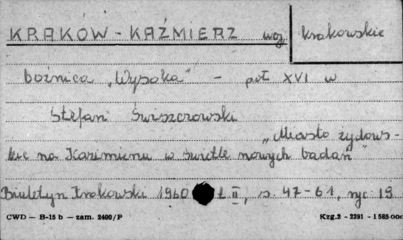 KRAKÓW - KAŹMIERZ woj. krakowskie
bożnica „Wysoka" - poł XVI w
Stefan Świszczowski
„Miasto żydows-
kie na Kazimierzu w świetle nowych badań"
Biuletyn Krakowski 1960 t. II, s. 47-61, ryc 19
CWD — B-15 b — zam. 2400/P Kzg.2 - 2291 - 1 585 000